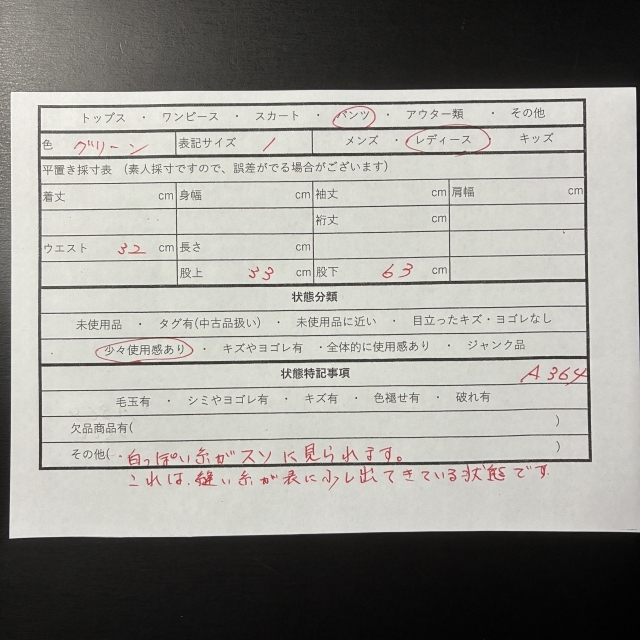 トップス ・ ワンピース ・ スカート ・ パンツ ・ アウター類 ・ その他
色 グリーン 表記サイズ 1 メンズ ・ レディース ・ キッズ
平置き採寸表 (素人採寸ですので、誤差がでる場合がございます)
着丈 cm 身幅 cm 袖丈 cm 肩幅 cm
裄丈 cm
ウエスト 32 cm 長さ cm
股上 33 cm 股下 63 cm
状態分類
未使用品 ・ タグ有(中古品扱い) ・ 未使用品に近い ・ 目立ったキズ・ヨゴレなし
少々使用感あり ・ キズやヨゴレ有 ・全体的に使用感あり ・ ジャンク品
状態特記事項 A364
毛玉有 ・ シミやヨゴレ有 ・ キズ有 ・ 色褪せ有 ・ 破れ有
欠品商品有( )
その他(・白っぽい糸がスソに見られます。 )
これは、縫い糸が表に少し出てきている状態です.